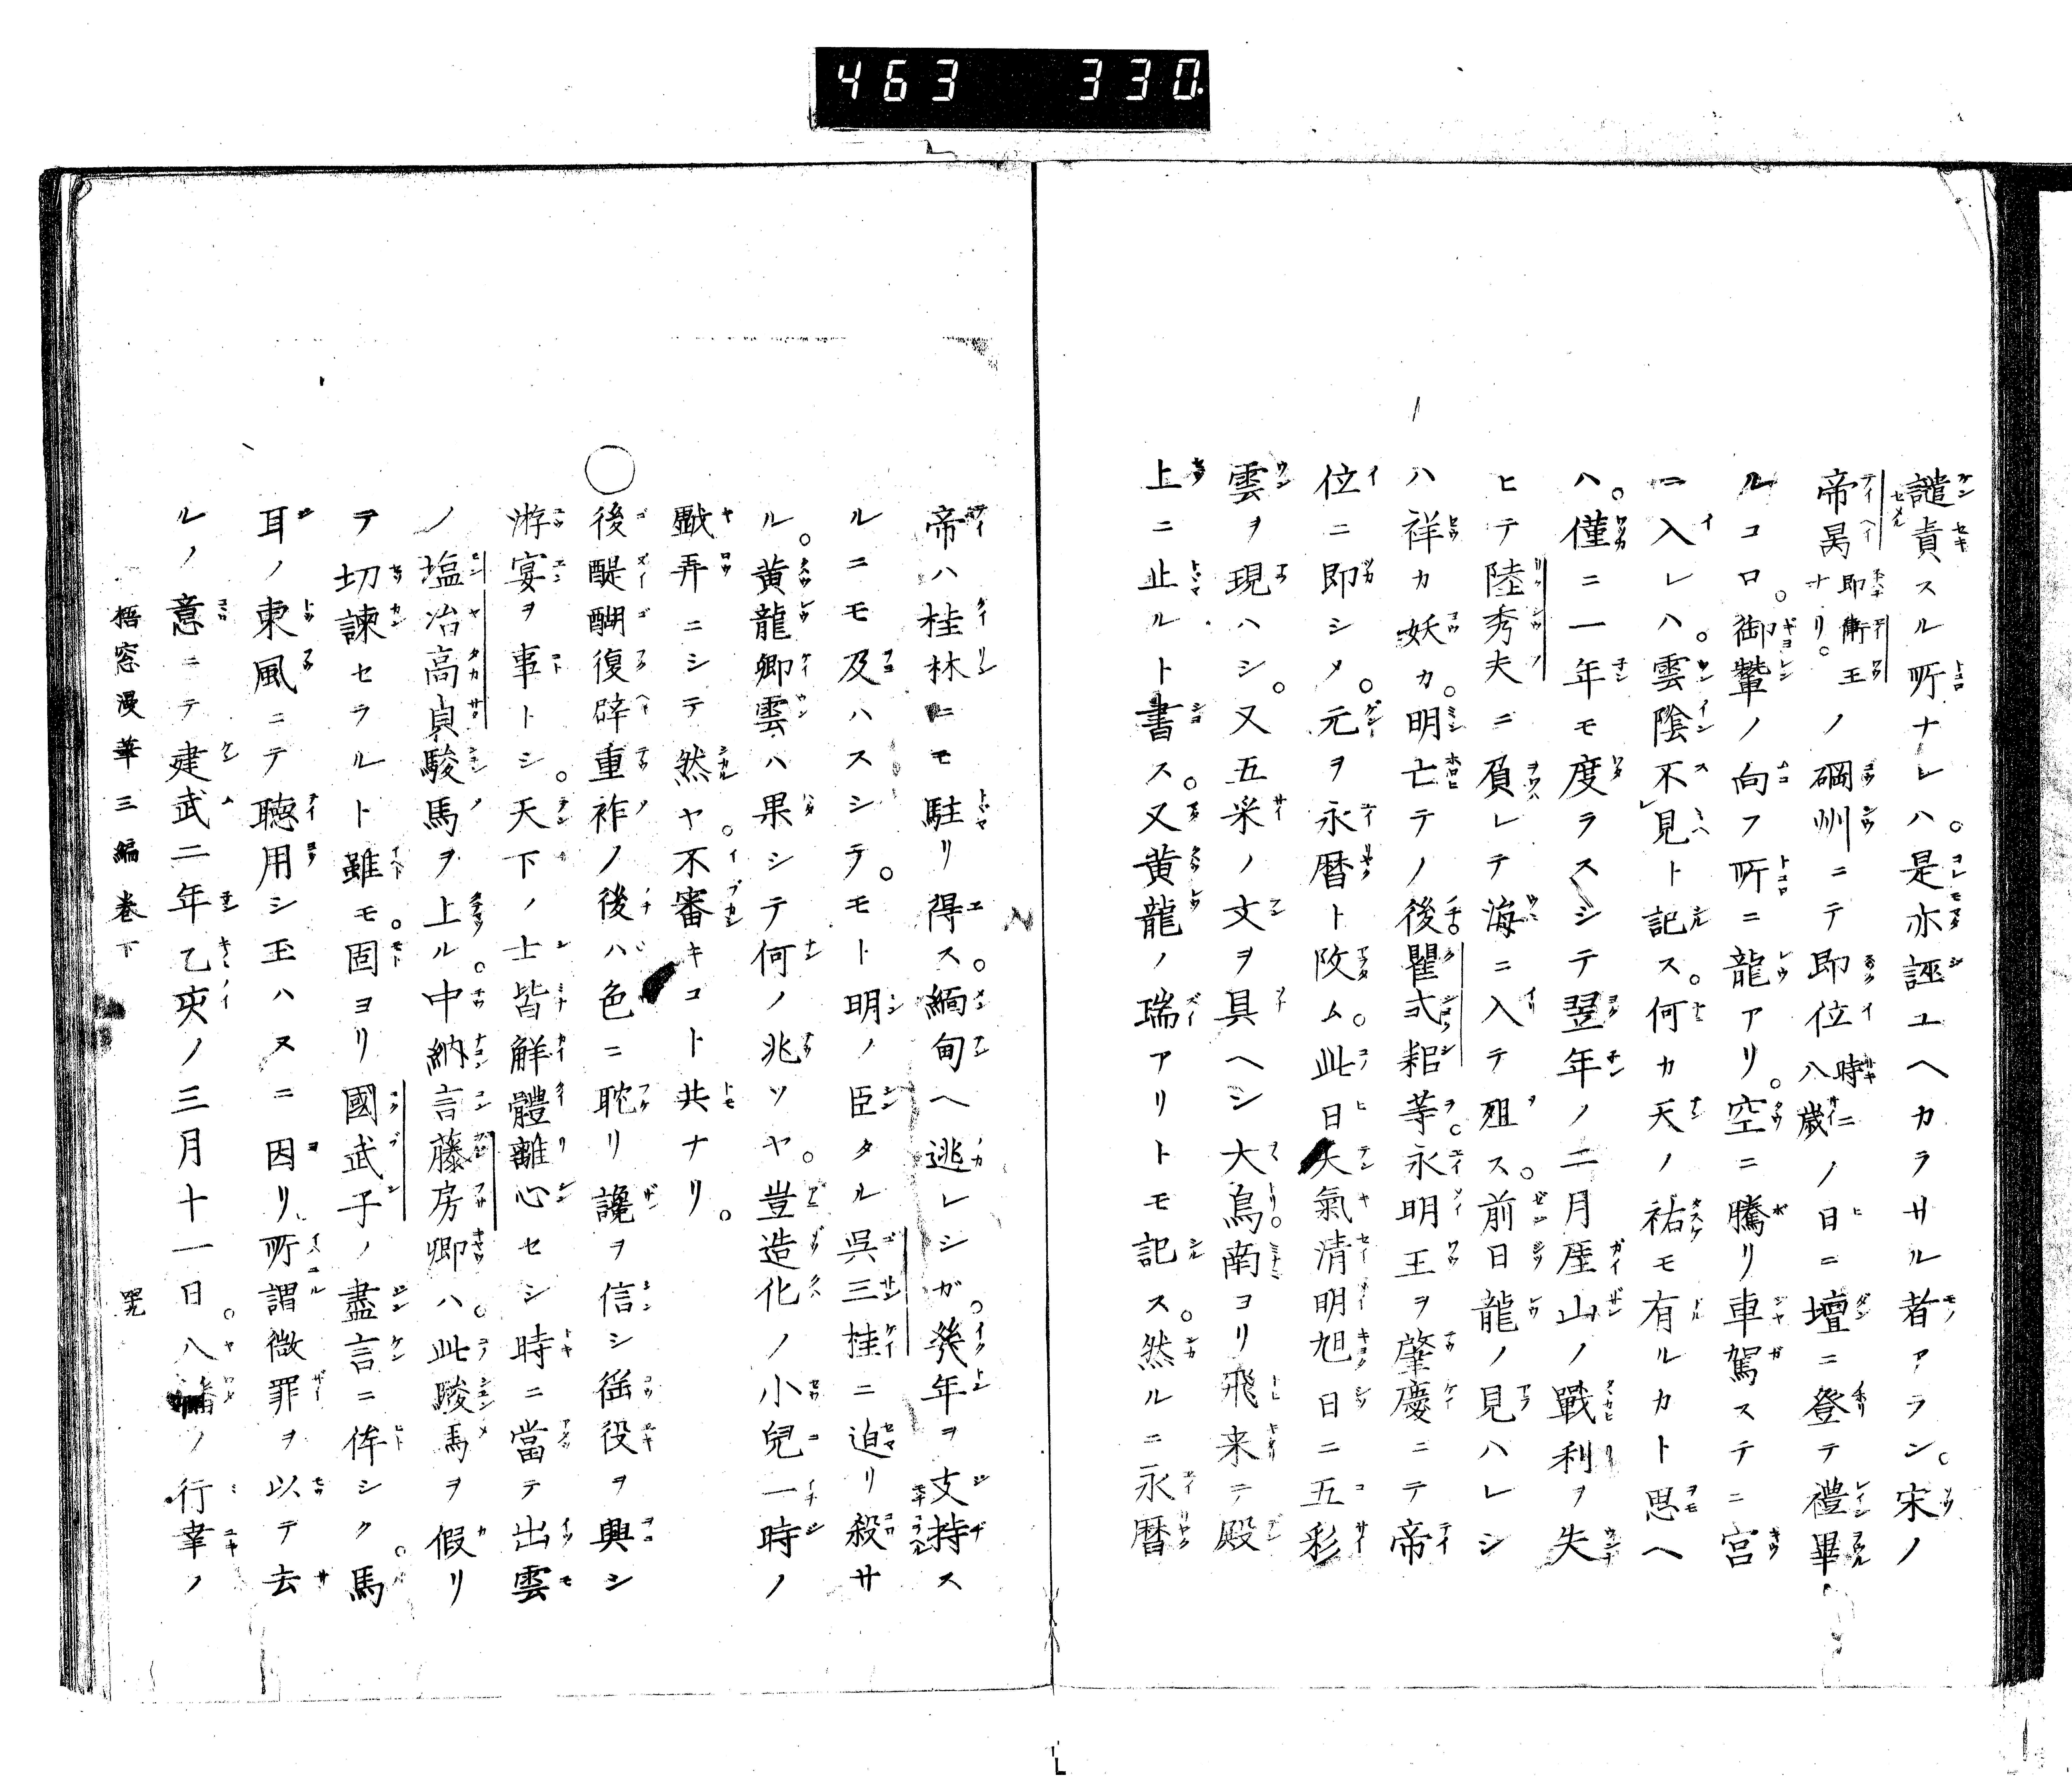 463 330
譴責スル所ナレハ。是亦誣ユヘカラサル者アラン。宋ノ
帝昺即衛王ナリ。ノ碙州ニテ即位時ニ八歳ノ日ニ壇ニ登テ禮畢
ルコロ。御輦ノ向フ所ニ龍アリ。空ニ騰リ車駕ステニ宮
ニ入レハ。雲陰不見ト記ス。何カ天ノ祐モ有ルカト思ヘ
ハ。僅ニ一年モ度ラスシテ翌年ノ二月厓山ノ戰利ヲ失
ヒテ陸秀夫ニ負レテ海ニ入テ殂ス。前日龍ノ見ハレシ
ハ祥カ妖カ。明亡テノ後。瞿式耜等。永明王ヲ肇慶ニテ帝
位ニ即シメ。元ヲ永曆ト改ム。此日天氣清明旭日ニ五彩
雲ヲ現ハシ。又五采ノ文ヲ具ヘシ大鳥。南ヨリ飛来テ殿
上ニ止ルト書ス。又黄龍ノ瑞アリトモ記ス。然ルニ永曆
帝ハ桂林ニモ駐リ得ス。緬甸ヘ逃レシガ。幾年ヲ支持ス
ルニモ及ハスシテ。モト明ノ臣タル呉三桂ニ迫リ殺サ
ル。黄龍卿雲ハ果シテ何ノ兆ソヤ。豈造化ノ小兒一時ノ
戲弄ニシテ然ヤ。不審キコト共ナリ。
○後醍醐復辟重祚ノ後ハ色ニ耽リ讒ヲ信シ徭役ヲ興シ
游宴ヲ事トシ。天下ノ士皆解體離心セシ時ニ當テ出雲
ノ塩冶高貞駿馬ヲ上ル。中納言藤房卿ハ。此駿馬ヲ假リ
テ切諫セラルト雖モ。固ヨリ國武子ノ盡言ニ侔シク。馬
耳ノ東風ニテ聴用シ玉ハスニ因リ、所謂微罪ヲ以テ去
ルノ意ニテ建武二年乙亥ノ三月十一日。八幡ノ行幸ノ
梧窓漫筆三編巻下 四九